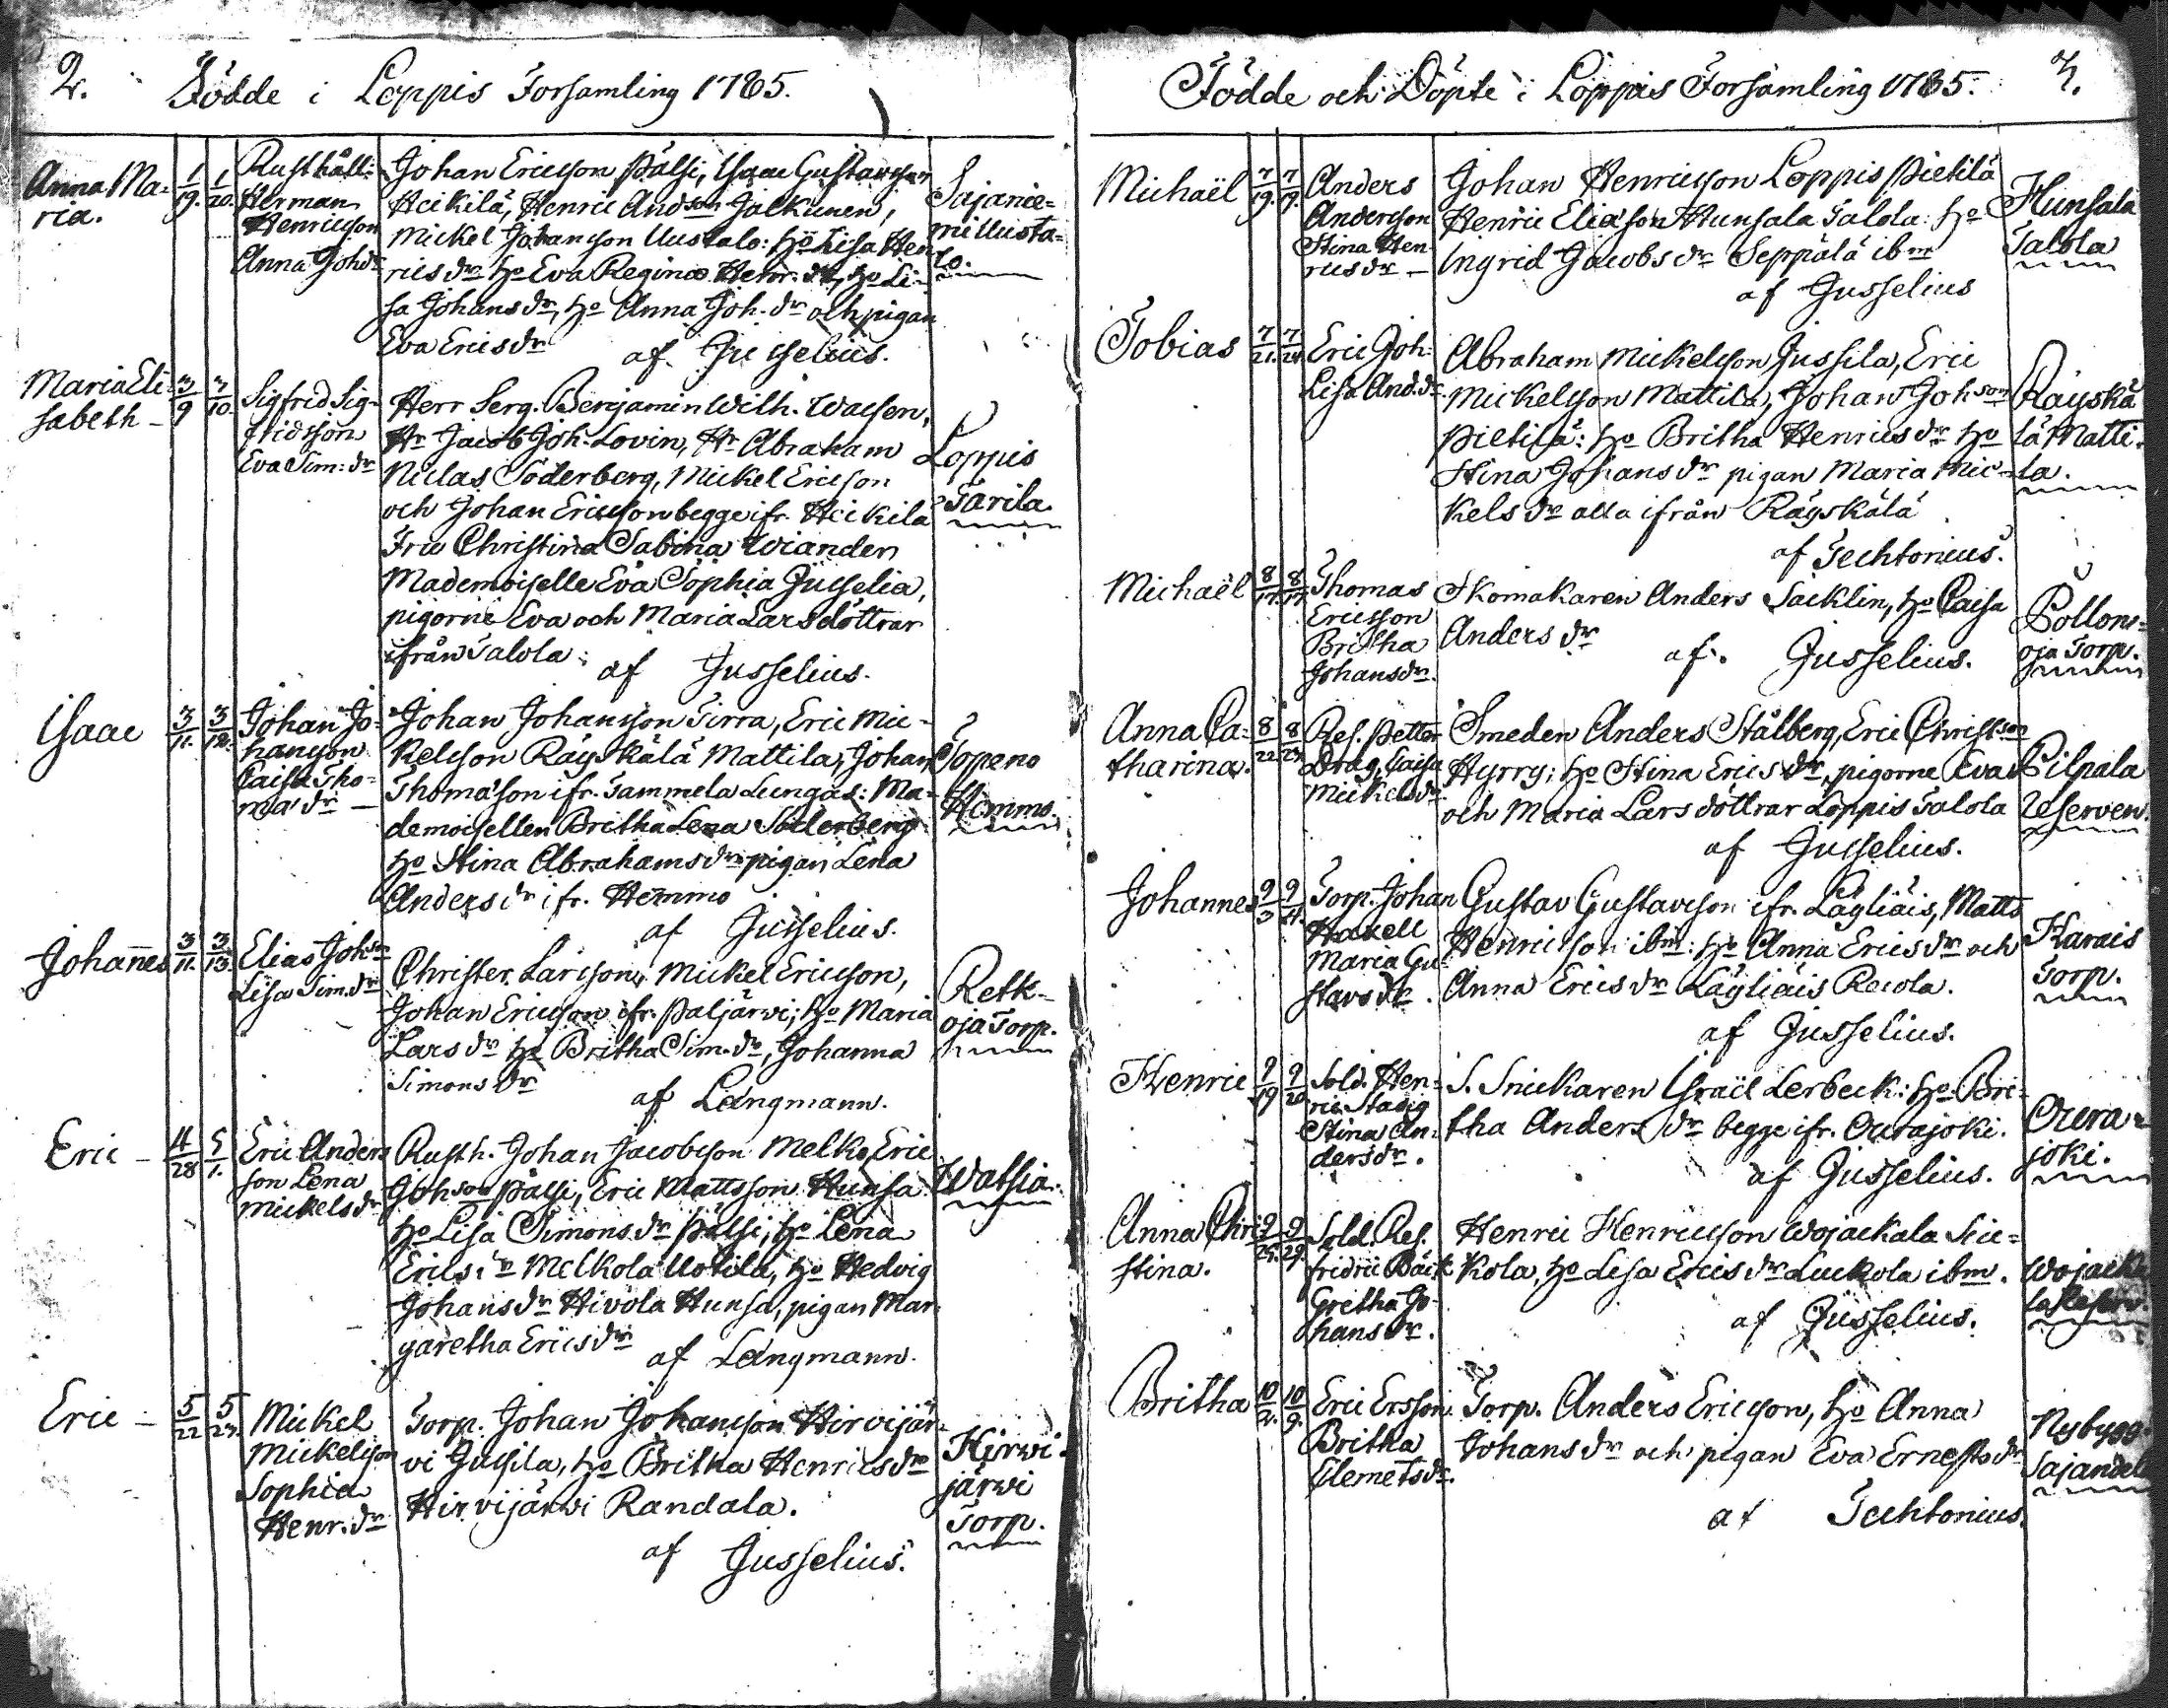 2. Födde i Loppis Forsamling 1765.
Anna Ma-
ria.
1/19. 1/20.
Rusthåll:
Herman
Henricsson
Anna Johdr
Johan Ericsson Pälsi, Isaac Gustavsson
Heikilä, Henric Andson Jalkunen,
Mickel Johansson Uustalo: ho Lisa Hen-
ricsdr ho Eva Regina Henr. dr, ho Li-
sa Johansdr, ho Anna Joh. dr och pigan
Eva Ericsdr
af Jusselius.
Sajanie-
mi Uusta-
lo.
Maria Eli-
sabeth -
3/9 3/10.
Sigfrid Sig-
fridsson
Eva Sim: dr
Herr Serg. Benjamin Wilh. Waesen,
Hr Jacob Joh. Lovin, Hr Abraham
Niclas Söderberg, Mickel Ericsson
och Johan Ericsson begge ifr. Heikilä
Fru Christina Sabina Wiander
Mademoiselle Eva Sophia Jusselia,
pigorne Eva och Maria Larsdöttrar
ifrån Talola.
af Jusselius.
Loppis
Tarila.
Isaac
3/11. 3/12.
Johan Jo-
hansson
Caisa Tho-
masdr -
Johan Johansson Tirra, Eric Mic-
kelsson Räyskälä Mattila, Johan
Thomasson ifr. Tammela Lungas: Ma-
demoisellen Britha Lena Söderberg
ho Stina Abrahamsdr pigan Lena
Andersdr ifr. Hemmo
af Jusselius.
Topeno
Hemmo.
Johannes
3/11. 3/13.
Elias Johson
Lisa Sim. dr
Christer Larsson, Mickel Ericsson,
Johan Ericsson ifr. Paljärvi; ho Maria
Larsdr ho Britha Sim. dr, Johanna
Simonsdr
af Långmann.
Retk-
oja Torp.
Eric -
4/28 5/1.
Eric Anders
son Lena
Mickelsdr
Rusth. Johan Jacobsson Melko, Eric
Johson Pälsi, Eric Mattsson Hunsa
ho Lisa Simonsdr Pälsi, ho Lena
Ericsdr Melkola Uotila, ho Hedvig
Johansdr Hivola Hunsa, pigan Mar-
garetha Ericsdr
af Långmann.
Watsia.
Eric -
5/22 5/23.
Mickel
Mickelsson
Sophia
Henr. dr
Torp. Johan Johansson Hirvijär-
vi Jussila, ho Britha Henricsdr
Hirvijärvi Randala.
af Jusselius.
Hirwi-
järwi
Torp.
Födde och Döpte i Loppis Forsamling 1765. 3.
Michaël
7/19. 7/19.
Anders
Andersson
Stina Hen-
ricsdr -
Johan Henricsson Loppis Pietilä
Henric Eliasson Hunsala Talola: ho
Ingrid Jacobsdr Seppälä ibm
af Jusselius
Hunsala
Talola
Tobias
7/21. 7/24.
Eric Joh:
Lisa And. dr
Abraham Mickelsson Jussila, Eric
Mickelsson Mattila, Johan Johson
Pietilä: ho Britha Henricsdr ho
Stina Johansdr pigan Maria Mic-
kelsdr alla ifrån Räyskälä
af Techtonius.
Räyskä
lä Matti-
la.
Michaël
8/17. 8/17.
Thomas
Ericsson
Britha
Johansdr.
Skomakaren Anders Säcklin, ho Caisa
Andersdr
af Jusselius.
Pollom-
oja Torp.
Anna Ca-
tharina.
8/22 8/24.
Res. Petter
Drag, Caisa
Mickelsdr
Smeden Anders Stålberg, Eric Christson
Hyrry; ho Stina Ericsdr, pigorne Eva
och Maria Larsdöttrar Loppis Talola
af Jusselius.
Pilpala
Reserven.
Johannes
9/3 9/4.
Torp. Johan
Hakell
Maria Gu-
stavsdr.
Gustav Gustavsson ifr. Lägliäis, Matts
Henricsson ibm: ho Anna Ericsdr och
Anna Ericsdr Lägliäis Recola.
af Jusselius.
Karais
Torp.
Henric
9/19 9/20
Sold. Hen-
ric Stadig
Stina An-
dersdr.
S. Snickaren Israël Lerbeck: ho Bri-
tha Andersdr begge ifr. Ourajoki.
af Jusselius.
Oura-
joki.
Anna Chri
stina.
9/25. 9/29.
Sold. Res.
Fridric Bäck
Gretha Jo-
hansdr.
Henric Henricsson Wojackala Seic-
kola, ho Lisa Ericsdr Luckola ibm.
af Jusselius.
Wojacka
la Reserv.
Britha
10/2. 10/9.
Eric Ersson.
Britha
Clemetsdr.
Torp. Anders Ericsson, ho Anna
Johansdr och pigan Eva Ernestsdr
af Techtonius.
Nybygg.